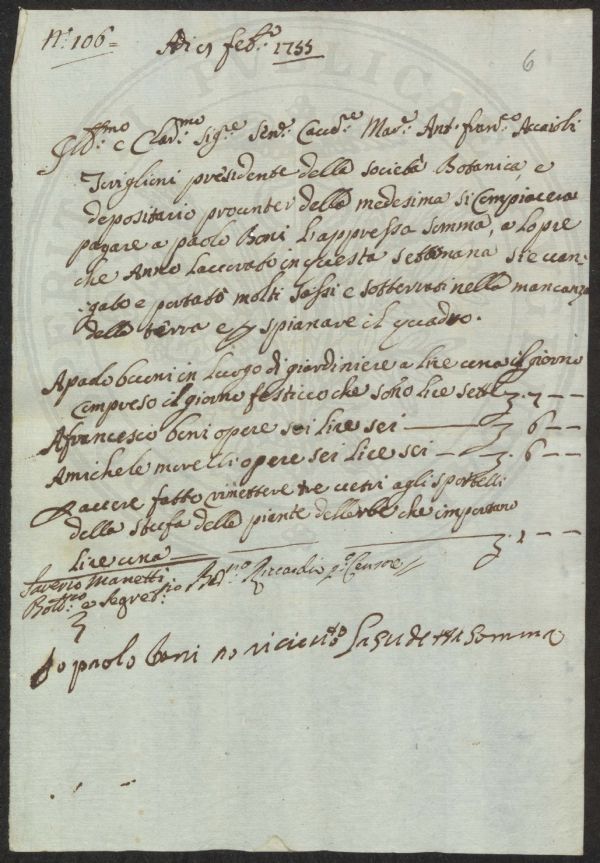 N.º 106 =
Adi 9 feb.º 1755
6
Ill.mo e Clar.mo Sig.re Sen.e Cav.re Mar.e Ant. Fran.co Acciaioli
Toriglioni presidente della società Botanica, e
depositario pro inter della medesima si Compiacera
pagare a paolo Boni l'appressa somma, a lopre
che Anno lavorato in questa settimana si e van-
-gato e portato molti sassi e sotterrati nella mancanza
della terra e p spianare il quadro.
A paolo buoni in luogo di giardiniere a lire una il giorno
Compreso il giorno festivo che sono lire sette 3. 7 --
A francesco boni opere sei lire sei — 3. 6 --
A michele morelli opere sei lire sei — 3. 6 --
P avere fatto rimettere tre vetri agli sportelli
della stufa delle piante dell erbe che importano
lire una — 3. 1 --
Saverio Manetti
Bott.co e Segret.rio Ber.no Riccardi p.o Censore
Io paolo boni o riceuto la sudetta somma